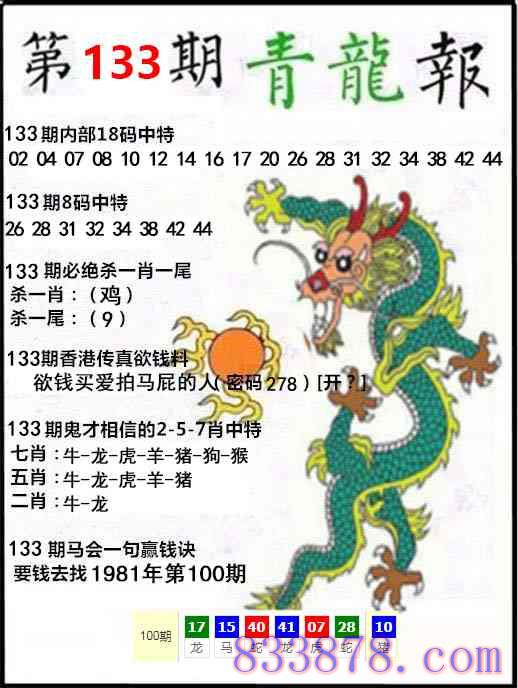 第133期青龍報
133期内部18码中特
02 04 07 08 10 12 14 16 17 20 26 28 31 32 34 38 42 44
133期8码中特
26 28 31 32 34 38 42 44
133期必绝杀一肖一尾
杀一肖：（鸡）
杀一尾：（9）
133期香港传真欲钱料
欲钱买爱拍马屁的人(密码278)[开?]
133期鬼才相信的2-5-7肖中特
七肖：牛-龙-虎-羊-猪-狗-猴
五肖：牛-龙-虎-羊-猪
二肖：牛-龙
133期马会一句赢钱诀
要钱去找1981年第100期
100期 17 15 40 41 07 28 10
龙 马 蛇 龙 虎 蛇 猪
833878.com